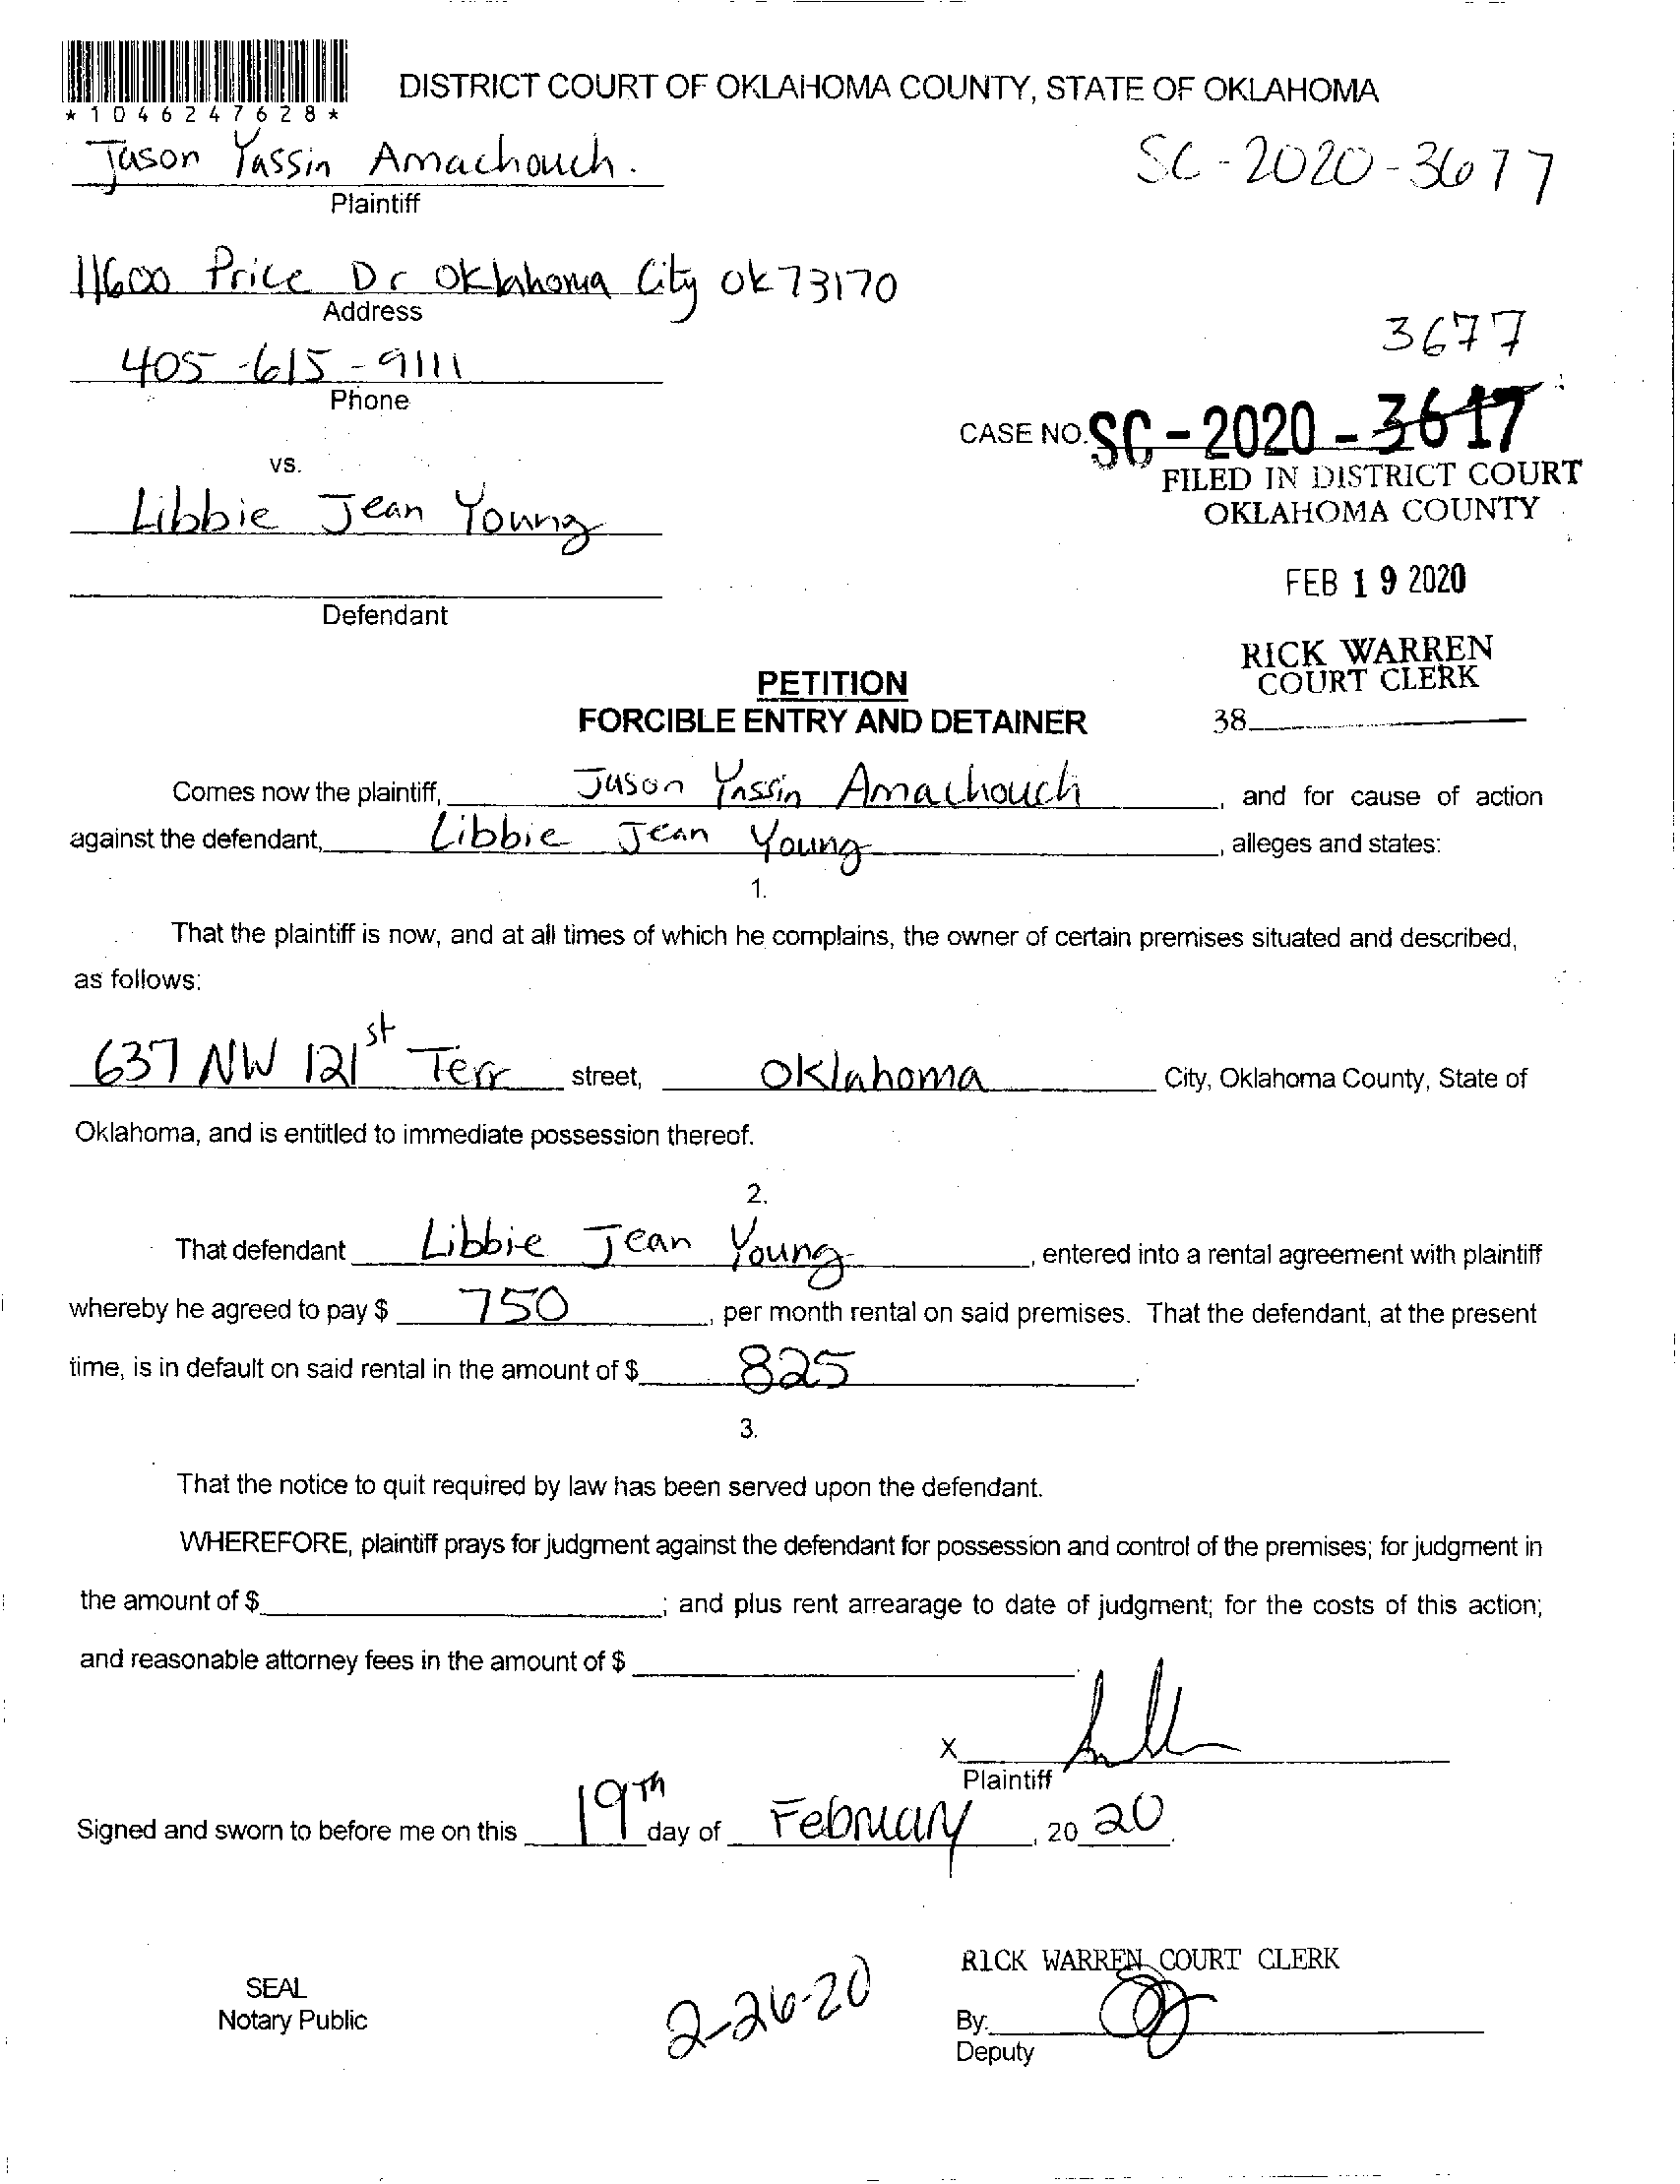 DISTRICT COURT OF OKLAHOMA COUNTY, STATE OF OKLAHOMA
*1046247628*
Jason Yassin Amachouch.
SC-2020-3677
Plaintiff
11600 Price Dr Oklahoma City OK 73170
Address
3677
405-615-9111
Phone
CASE NO. SC-2020-3617
vs.
FILED IN DISTRICT COURT
OKLAHOMA COUNTY
Libbie Jean Young
FEB 19 2020
Defendant
RICK WARREN
COURT CLERK
PETITION
FORCIBLE ENTRY AND DETAINER
38
Comes now the plaintiff, Jason Yassin Amachouch, and for cause of action
against the defendant, Libbie Jean Young, alleges and states:
1.
That the plaintiff is now, and at all times of which he complains, the owner of certain premises situated and described,
as follows:
637 NW 121st Terr street, Oklahoma City, Oklahoma County, State of
Oklahoma, and is entitled to immediate possession thereof.
2.
That defendant Libbie Jean Young, entered into a rental agreement with plaintiff
whereby he agreed to pay $ 750, per month rental on said premises. That the defendant, at the present
time, is in default on said rental in the amount of $ 825.
3.
That the notice to quit required by law has been served upon the defendant.
WHEREFORE, plaintiff prays for judgment against the defendant for possession and control of the premises; for judgment in
the amount of $ ; and plus rent arrearage to date of judgment; for the costs of this action;
and reasonable attorney fees in the amount of $
X
Plaintiff
Signed and sworn to before me on this 19th day of February, 20 20.
RICK WARREN COURT CLERK
SEAL
Notary Public
2-26-20
By:
Deputy